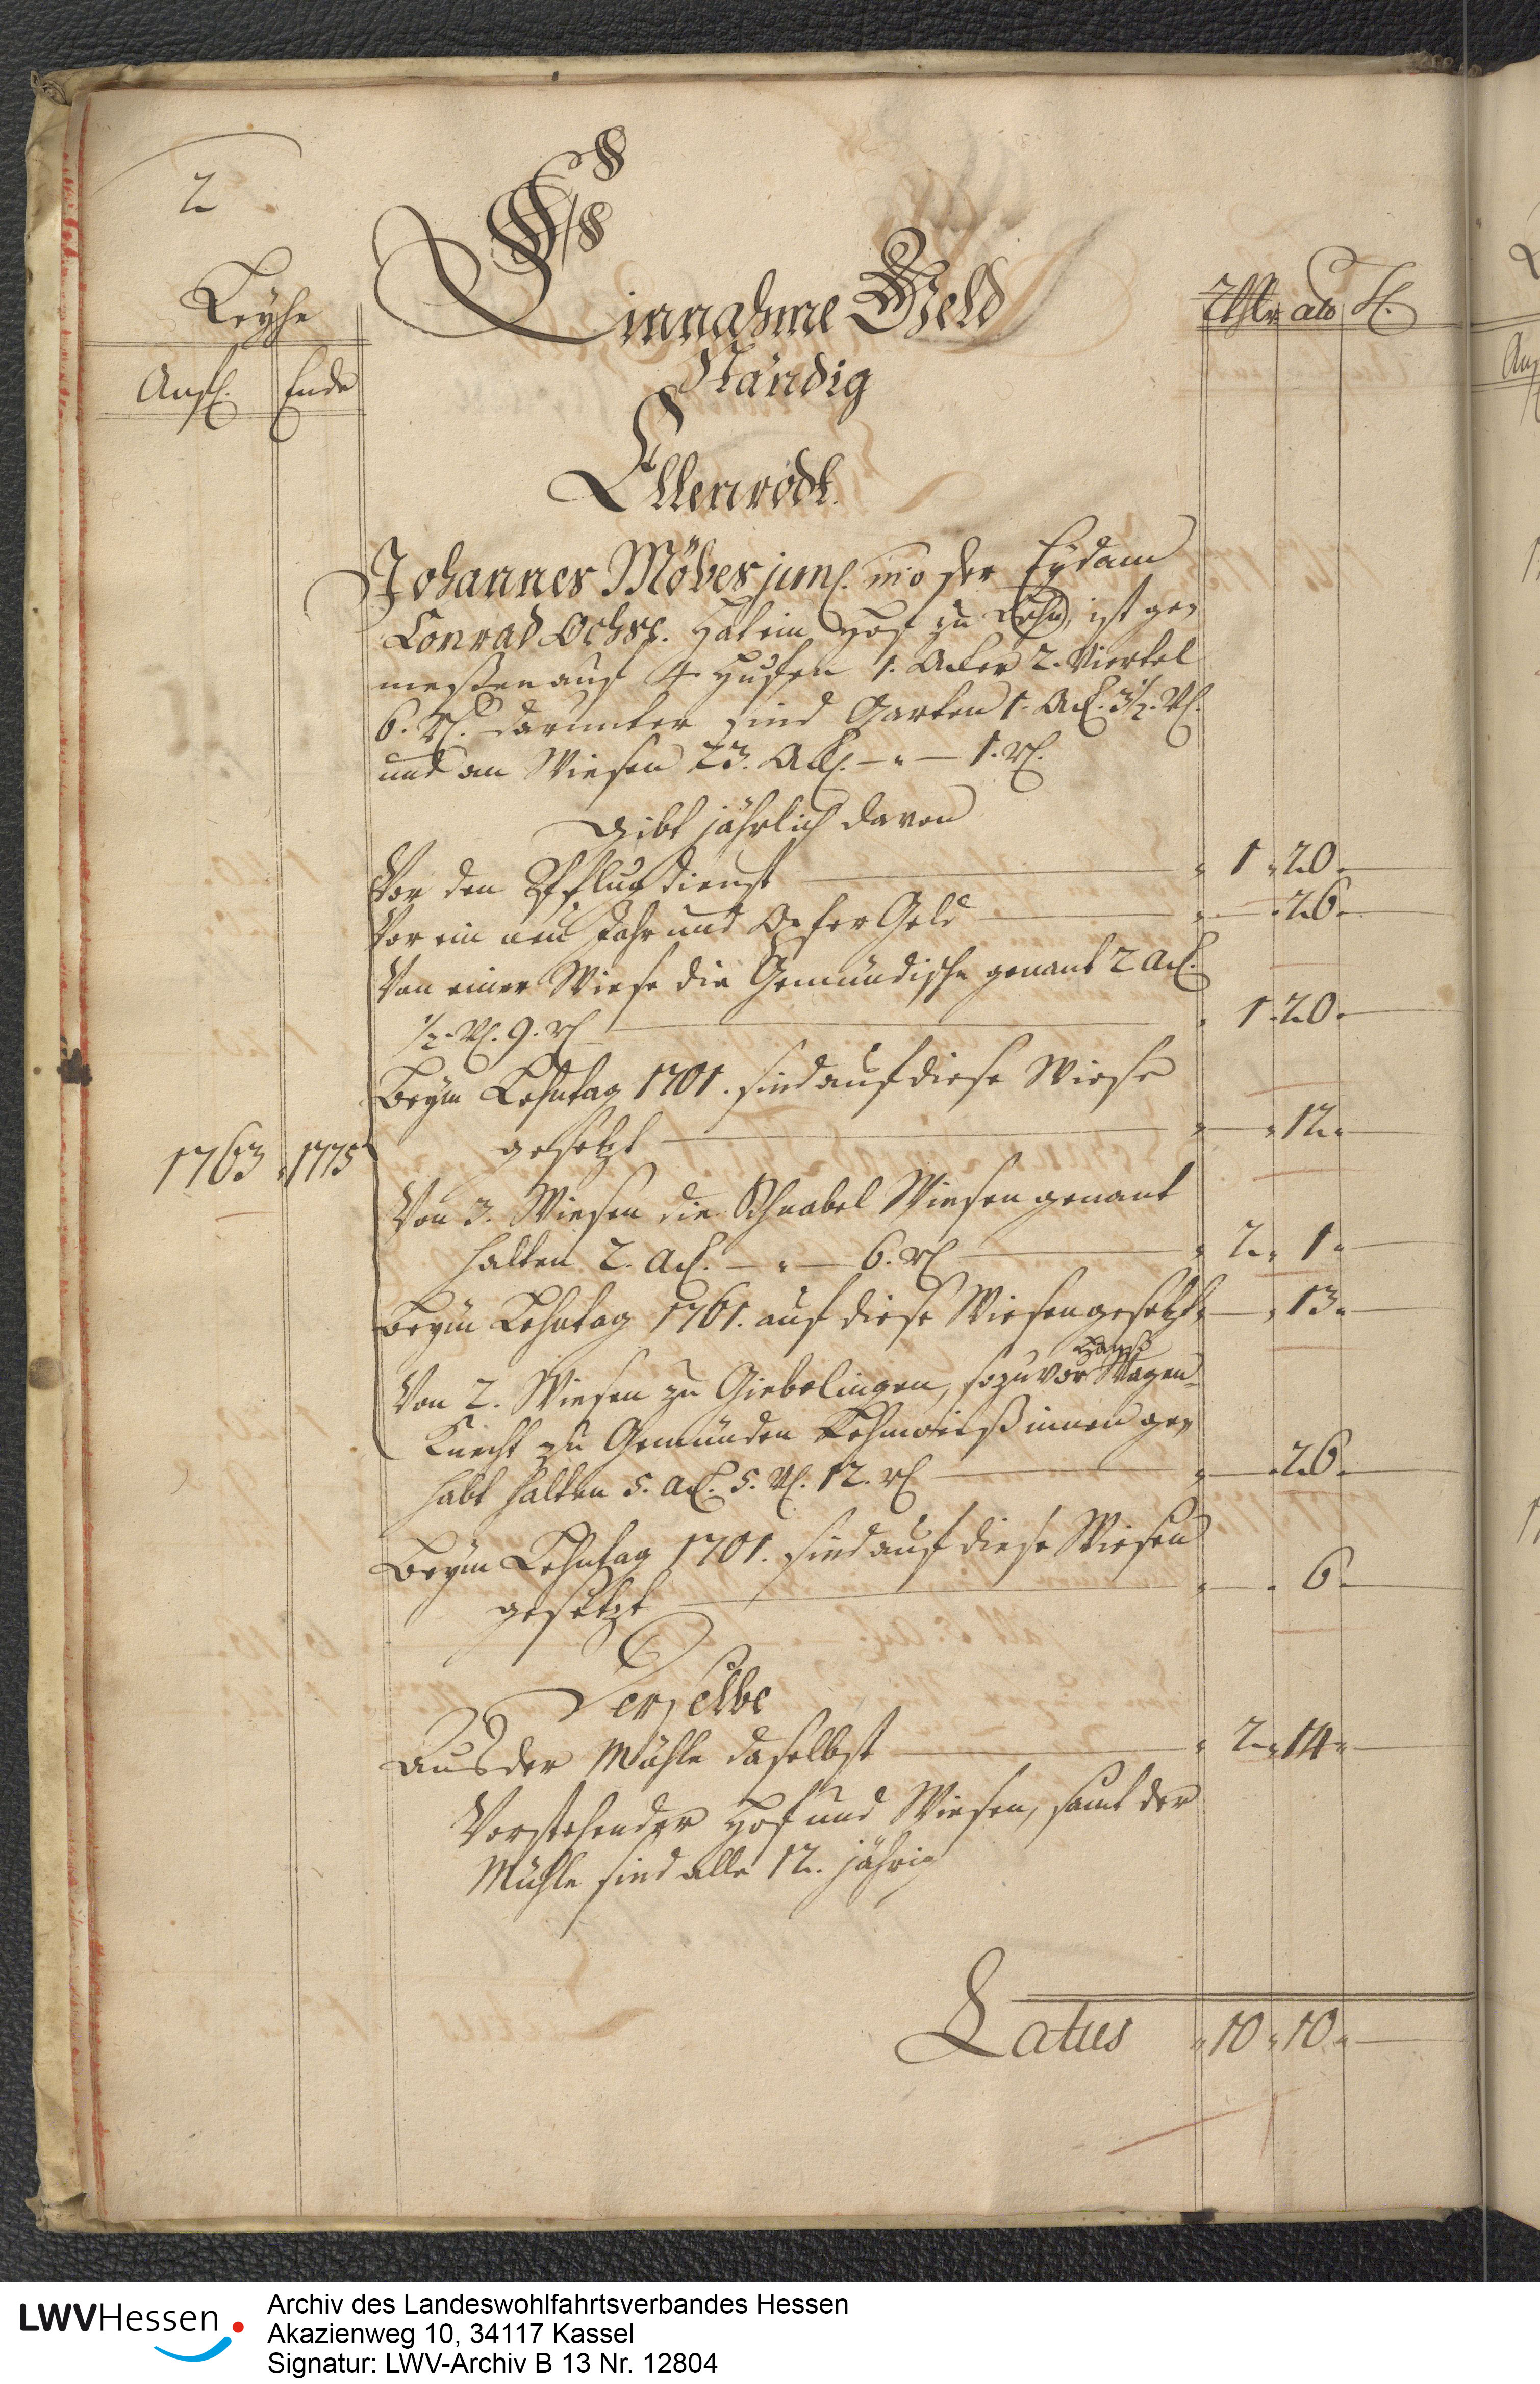 2
Leyhe
Anf. Ende
Einnahme Geld
Ständig
Ellenrodt.
Thlr alb hl.
Johannes Möbes jun. modo der Eydam
Conrad Ochse. Hat ein Hof zu Lehn, ist ge,
meßen auf 4. Hufen 1. Acker 2. Viertel
6. Rt. darunter sind Garten 1. Ack. 3½. Vt.
und an Wiesen 23. Ack. — " — 1. Rt.
Gibt jährlich davon
Vor den Pflugdienst " 1 " 20 "
Vor ein neu Jahr und Opfer Geld " — " 26 "
Von einer Wiese die Gemündische genant 2 Ack.
½. Vt. 9. Rt. " 1 " 20 "
Beym Lehntag 1701. sind auf diese Wiese
gesetzt " — " 12 "
1763 " 1775
Von 3. Wiesen die Schnabel Wiesen genant
halten 2. Ack. — " — 6. Rt. " 2 " 1 "
Beym Lehntag 1761. auf diese Wiesen gesetzt " — " 13 "
Hanß
Von 2. Wiesen zu Giebelingen, so zuvor Wagen-
Knecht zu Gemünden Lehnweiß innen ge,
habt halten 5. Ack. 5. Vt. 12. Rt. " — " 26 "
Beym Lehntag 1701. sind auf diese Wiesen
gesetzt " — " 6 "
Derselbe
Aus der Mühle daselbst " 2 " 14 "
Vorstehender Hof und Wiesen, samt der
Mühle sind alle 12. jährig
Latus " 10 " 10 "
LWVHessen
Archiv des Landeswohlfahrtsverbandes Hessen
Akazienweg 10, 34117 Kassel
Signatur: LWV-Archiv B 13 Nr. 12804